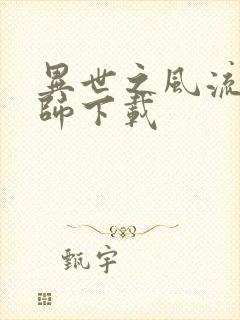 異世之風流
師下載
甄宇